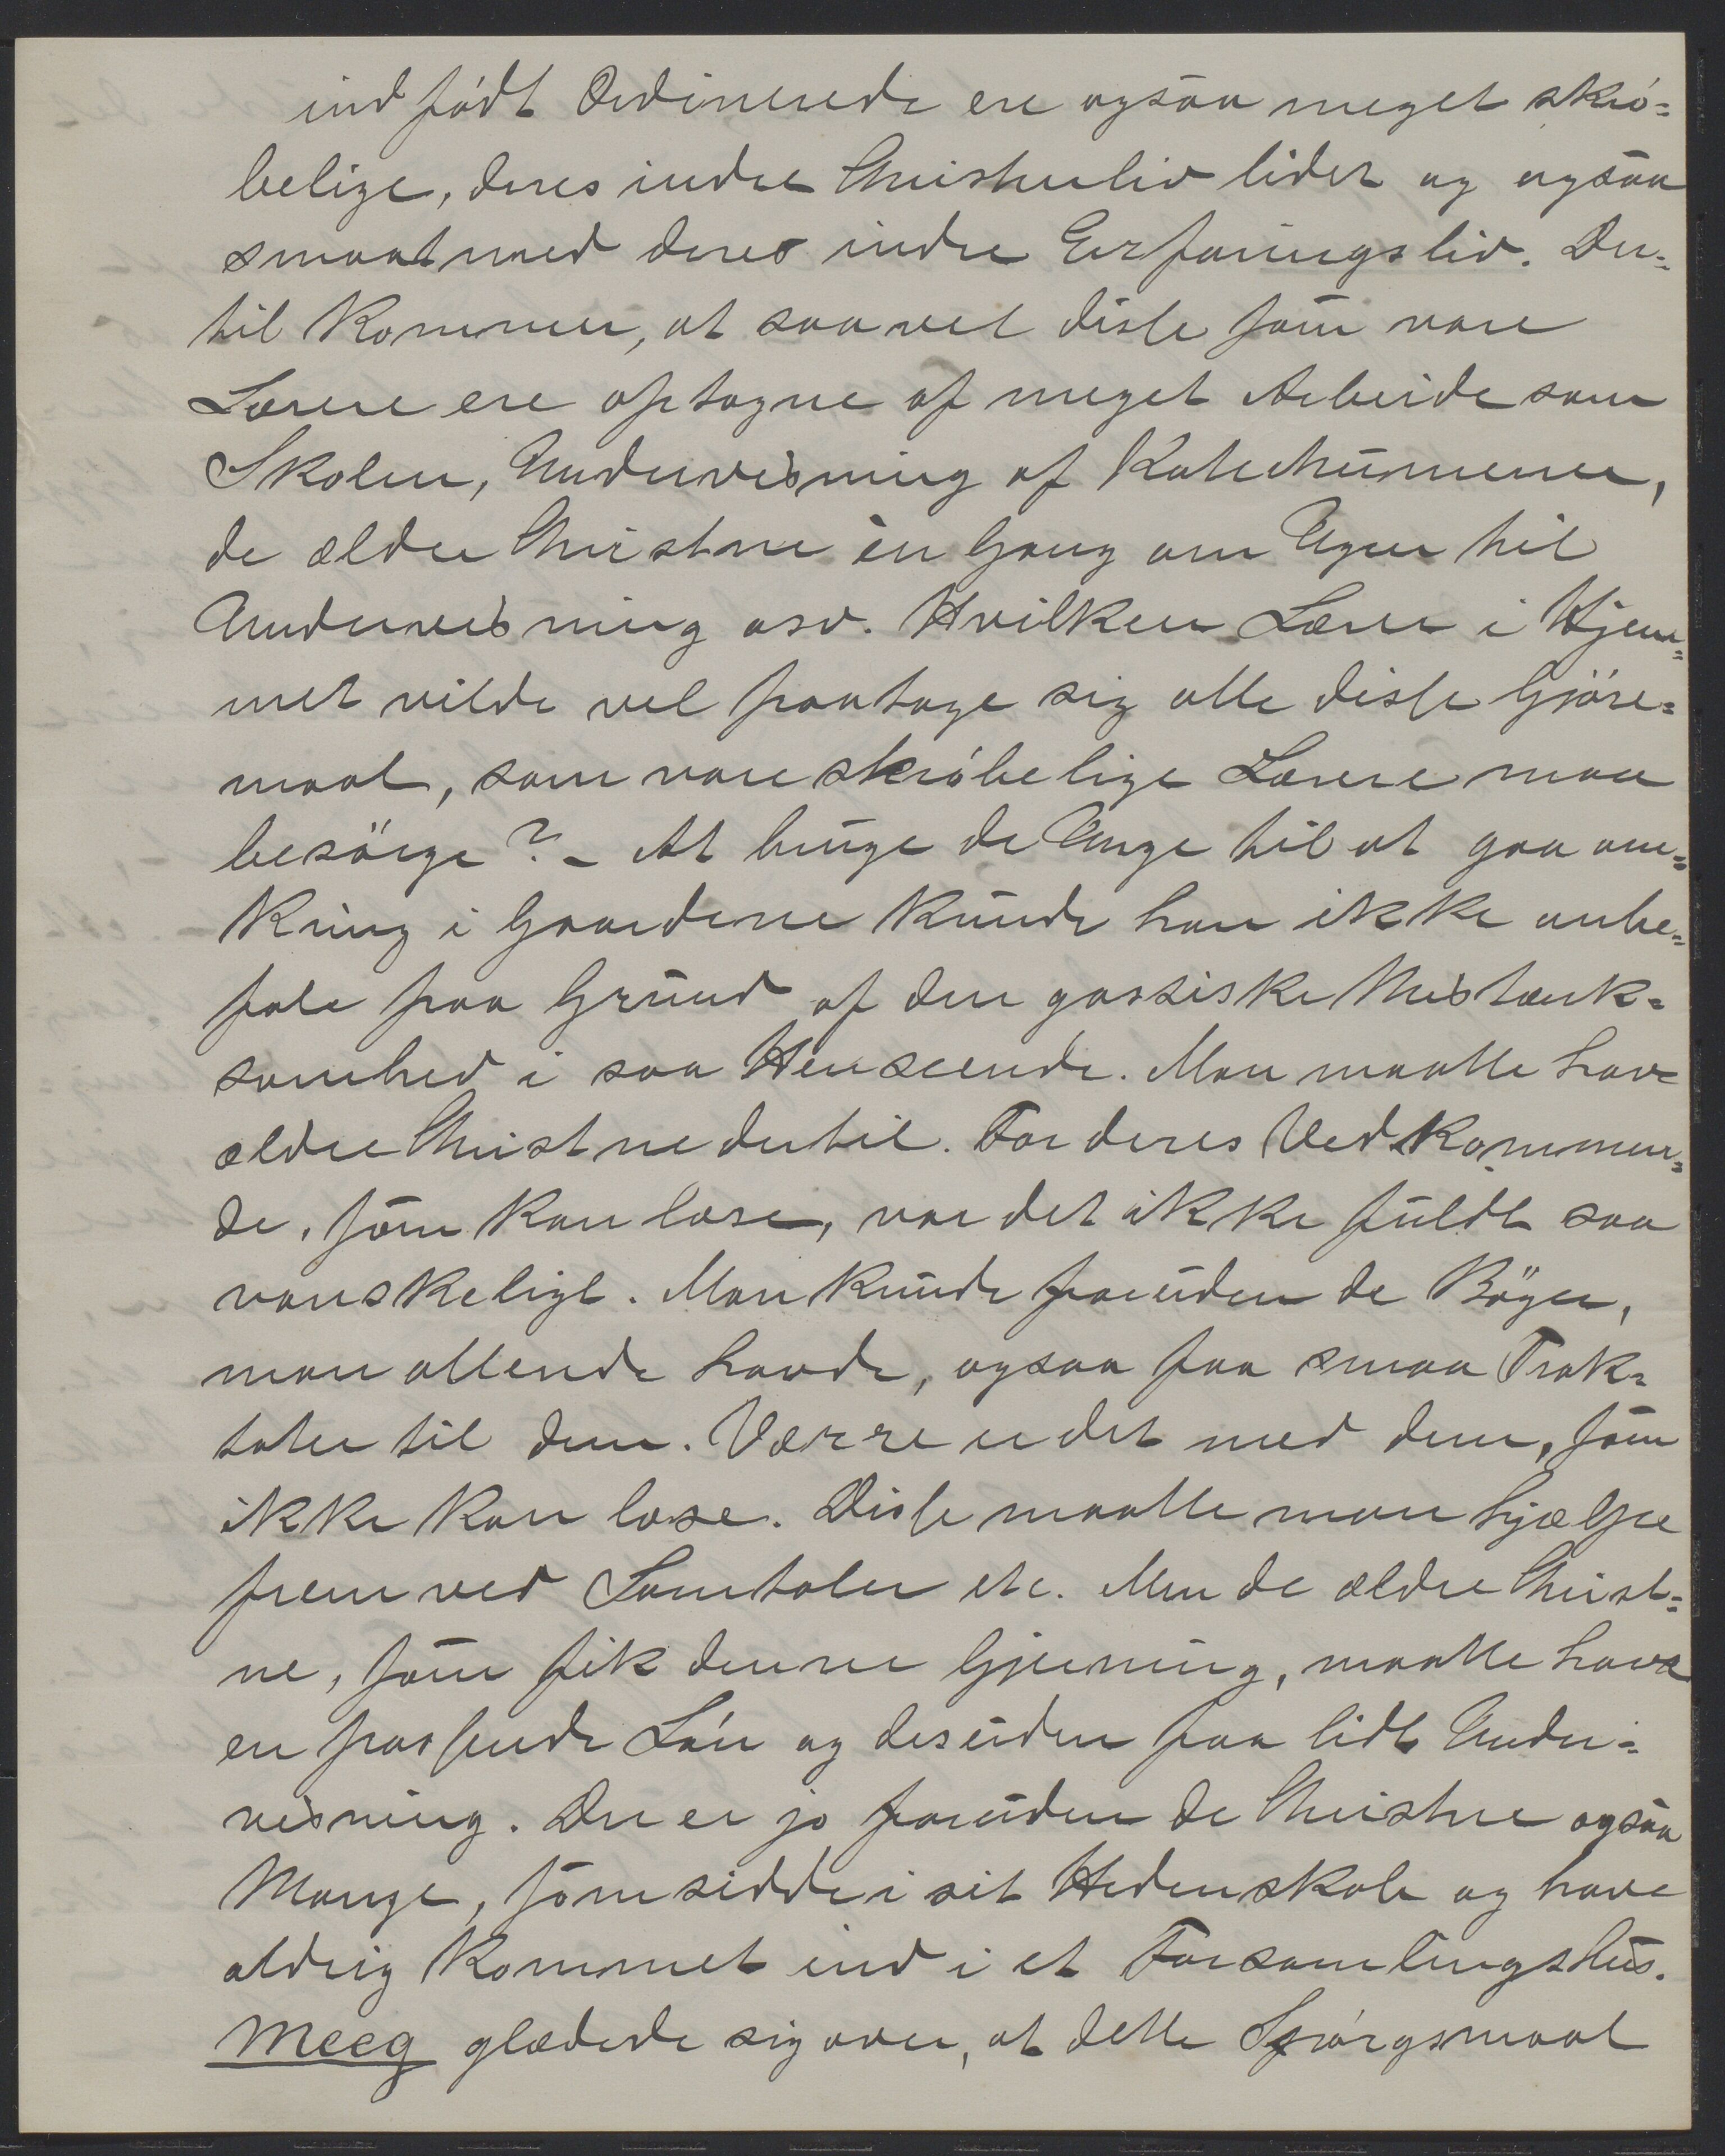 indfødt Ordinerede ere ogsaa meget skrø=
belige, deres indre Christenliv lidet og ogsaa
smaat med deres indre Erfaringsliv. Der=
til kommer, at saavel disse som vare
Lærere ere optagne af meget Arbeide som
Skolen, Undervisning af Katechumener,
de ældre Christne èn Gang om Ugen til
Undervisning osv. Hvilken Lærer i Hjem=
met vilde vel paatage sig alle disse Gjøre=
maal, som vare skrøbelige Lærere maa
besørge? – At bruge de Unge til at gaa om=
kring i Gaardene kunde han ikke anbe=
fale paa Grund af den gassiske Mistænk=
somhed i saa Henseende. Man maatte have
ældre Christne dertil. For deres Vedkommen=
de, som kan læse, var det ikke fuldt saa
vanskeligt. Man kunde foruden de Bøger,
man allerede havde, ogsaa faa smaa Trak=
tater til dem. Værre er det med dem, som
ikke kan læse. Disse maatte man hjælpe
frem ved Samtaler etc. Men de ældre Christ=
ne, som fik denne Gjerning, maatte have
en passende Løn og desuden faa lidt Under=
visning. Der er jo foruden de Christne ogsaa
Mange, som sidde i sit Hedenskab og have
aldrig kommet ind i et Forsamlingshus.
Meeg glædede sig over, at dette Spørgsmaal